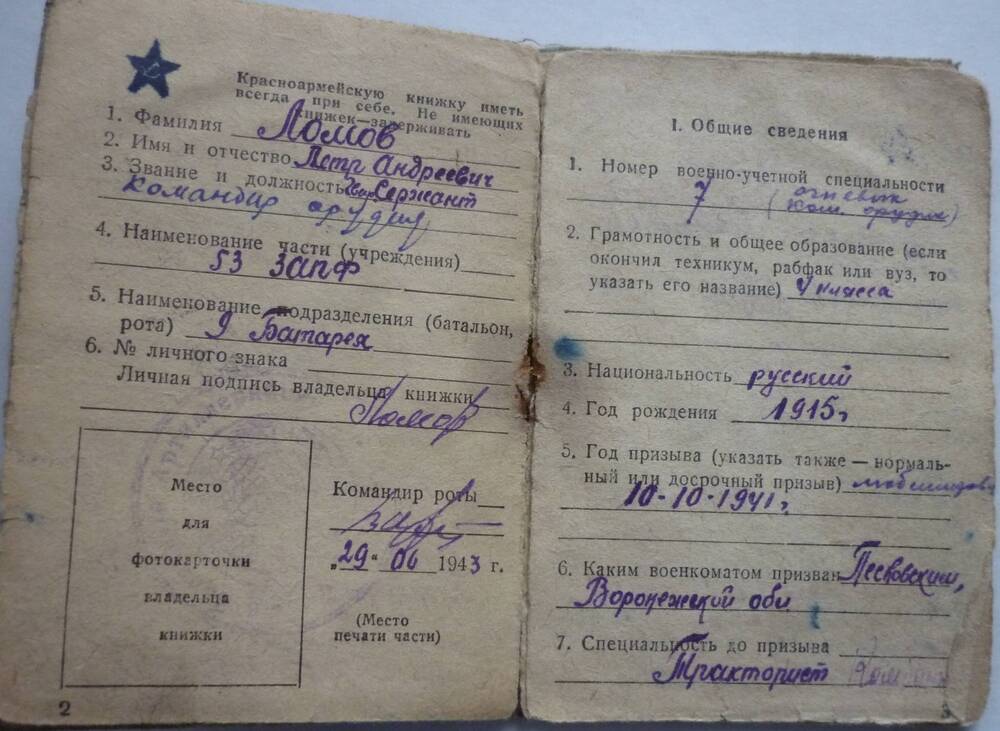 Красноармейскую книжку иметь
всегда при себе. Не имеющих
книжек—задерживать
1. Фамилия Ломов
2. Имя и отчество Петр Андреевич
3. Звание и должность Сержант
Командир орудия
4. Наименование части (учреждения)
53 ЗАПФ
5. Наименование подразделения (батальон,
рота) 9 Батарея
6. № личного знака
Личная подпись владельца книжки
Ломов
Место
для
фотокарточки
владельца
книжки
Командир роты
„29“ 06 1943 г.
(Место
печати части)
2
I. Общие сведения
1. Номер военно-учетной специальности
7 (огневик
ком. орудия)
2. Грамотность и общее образование (если
окончил техникум, рабфак или вуз, то
указать его название) 4 класса
3. Национальность русский
4. Год рождения 1915г
5. Год призыва (указать также — нормаль-
ный или досрочный призыв)
10-10-1941г.
6. Каким военкоматом призван Песковским,
Воронежский обл
7. Специальность до призыва
Тракторист
3